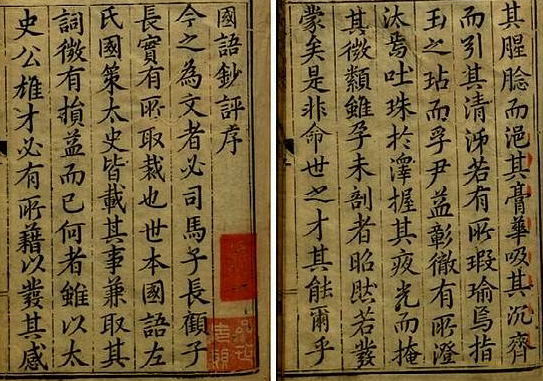 國語鈔評序
今之為文者必司馬子長顧子
長實有所取裁也世本國語左
氏國策太史皆載其事兼取其
詞微有損益而已何者雖以太
史公雄才必有所藉以發其感
其腥腍而浥其膏華吸其沉齊
而引其清泲若有所瑕瑜焉指
玉之玷而孚尹益彰徹有所澄
汰焉吐珠於澤握其夜光而掩
其微纇雖孕未剖者昭然若發
蒙矣是非命世之才其能爾乎